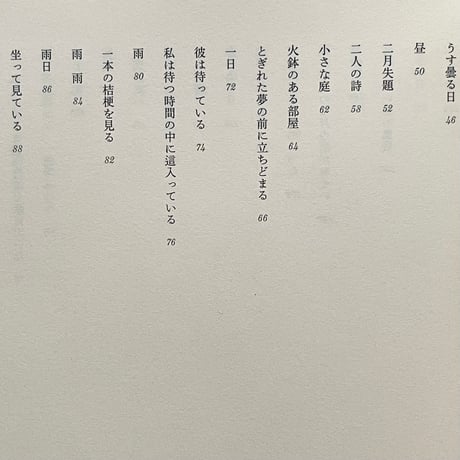 うす曇る日 46
昼 50
二月失題 52
二人の詩 58
小さな庭 62
火鉢のある部屋 64
とぎれた夢の前に立ちどまる 66
一日 72
彼は待っている 74
私は待つ時間の中に這入っている 76
雨 80
一本の桔梗を見る 82
雨　雨 84
雨日 86
坐って見ている 88